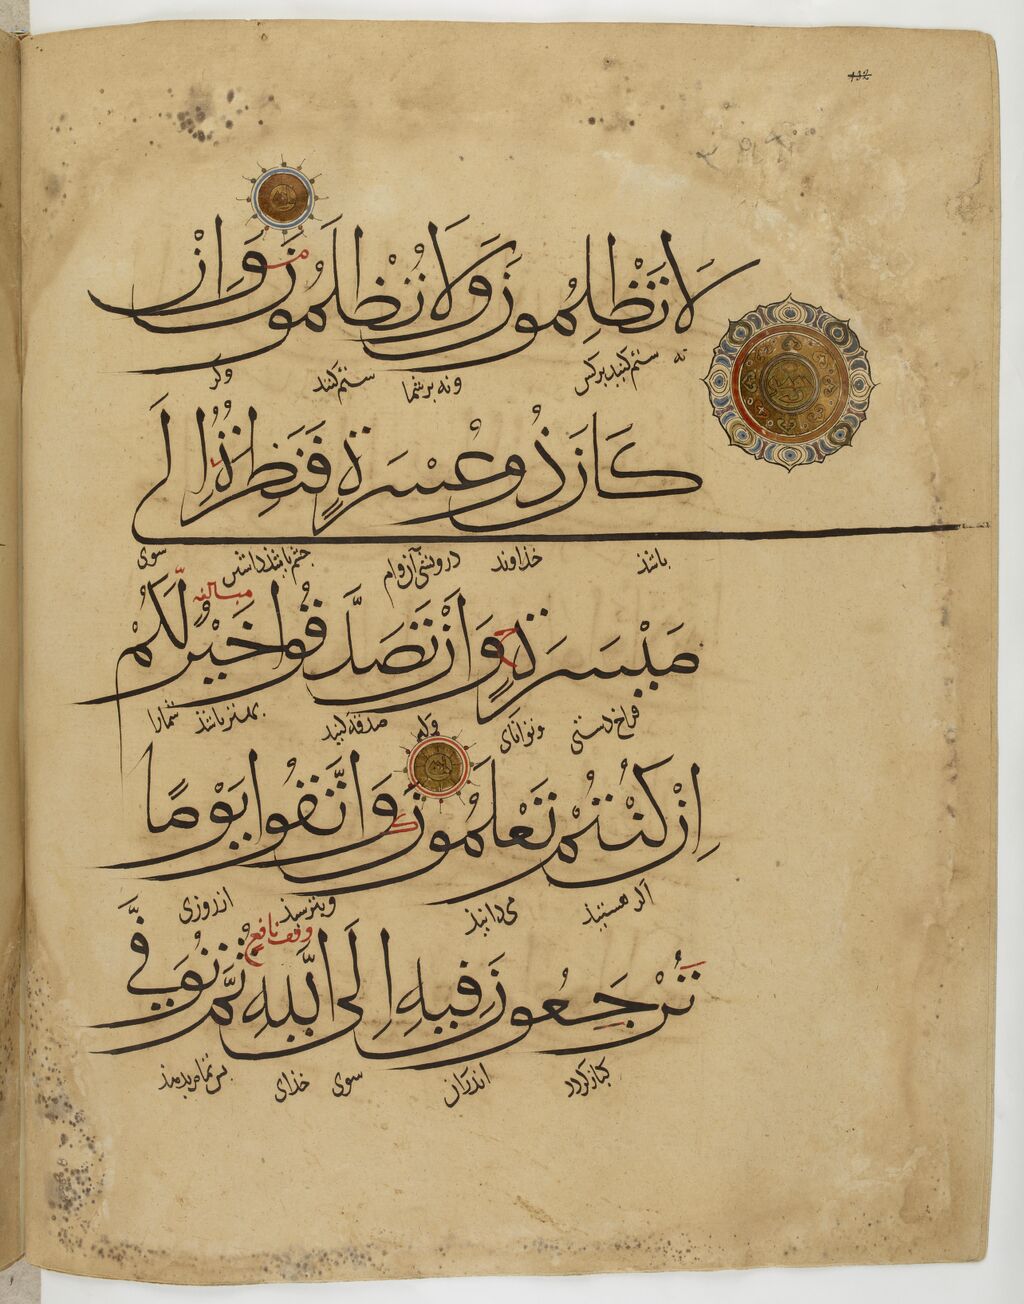 لَا تَظْلِمُونَ وَلَا تُظْلَمُونَ وَاِنْ
نه ستم کنید بر کس ونه بر شما ستم کنند وگر
كَانَ ذُو عُسْرَةٍ فَنَظِرَةٌ اِلَى
باشذ خذاوند درویشی آزوام چشم باشذ داشتن سوی
مَيْسَرَةٍ وَاَنْ تَصَدَّقُوا خَيْرٌ لَكُمْ
فراخ دستی وتوانای صدقه کنید بهتر باشذ شمارا
اِنْ كُنْتُمْ تَعْلَمُونَ وَاتَّقُوا يَوْمًا
اگر هستیذ می دانیذ وبترسیذ از روزی
وقف نافع
تُرْجَعُونَ فِيهِ اِلَى اللّٰهِ ثُمَّ تُوَفَّى
اندران سوی خذای